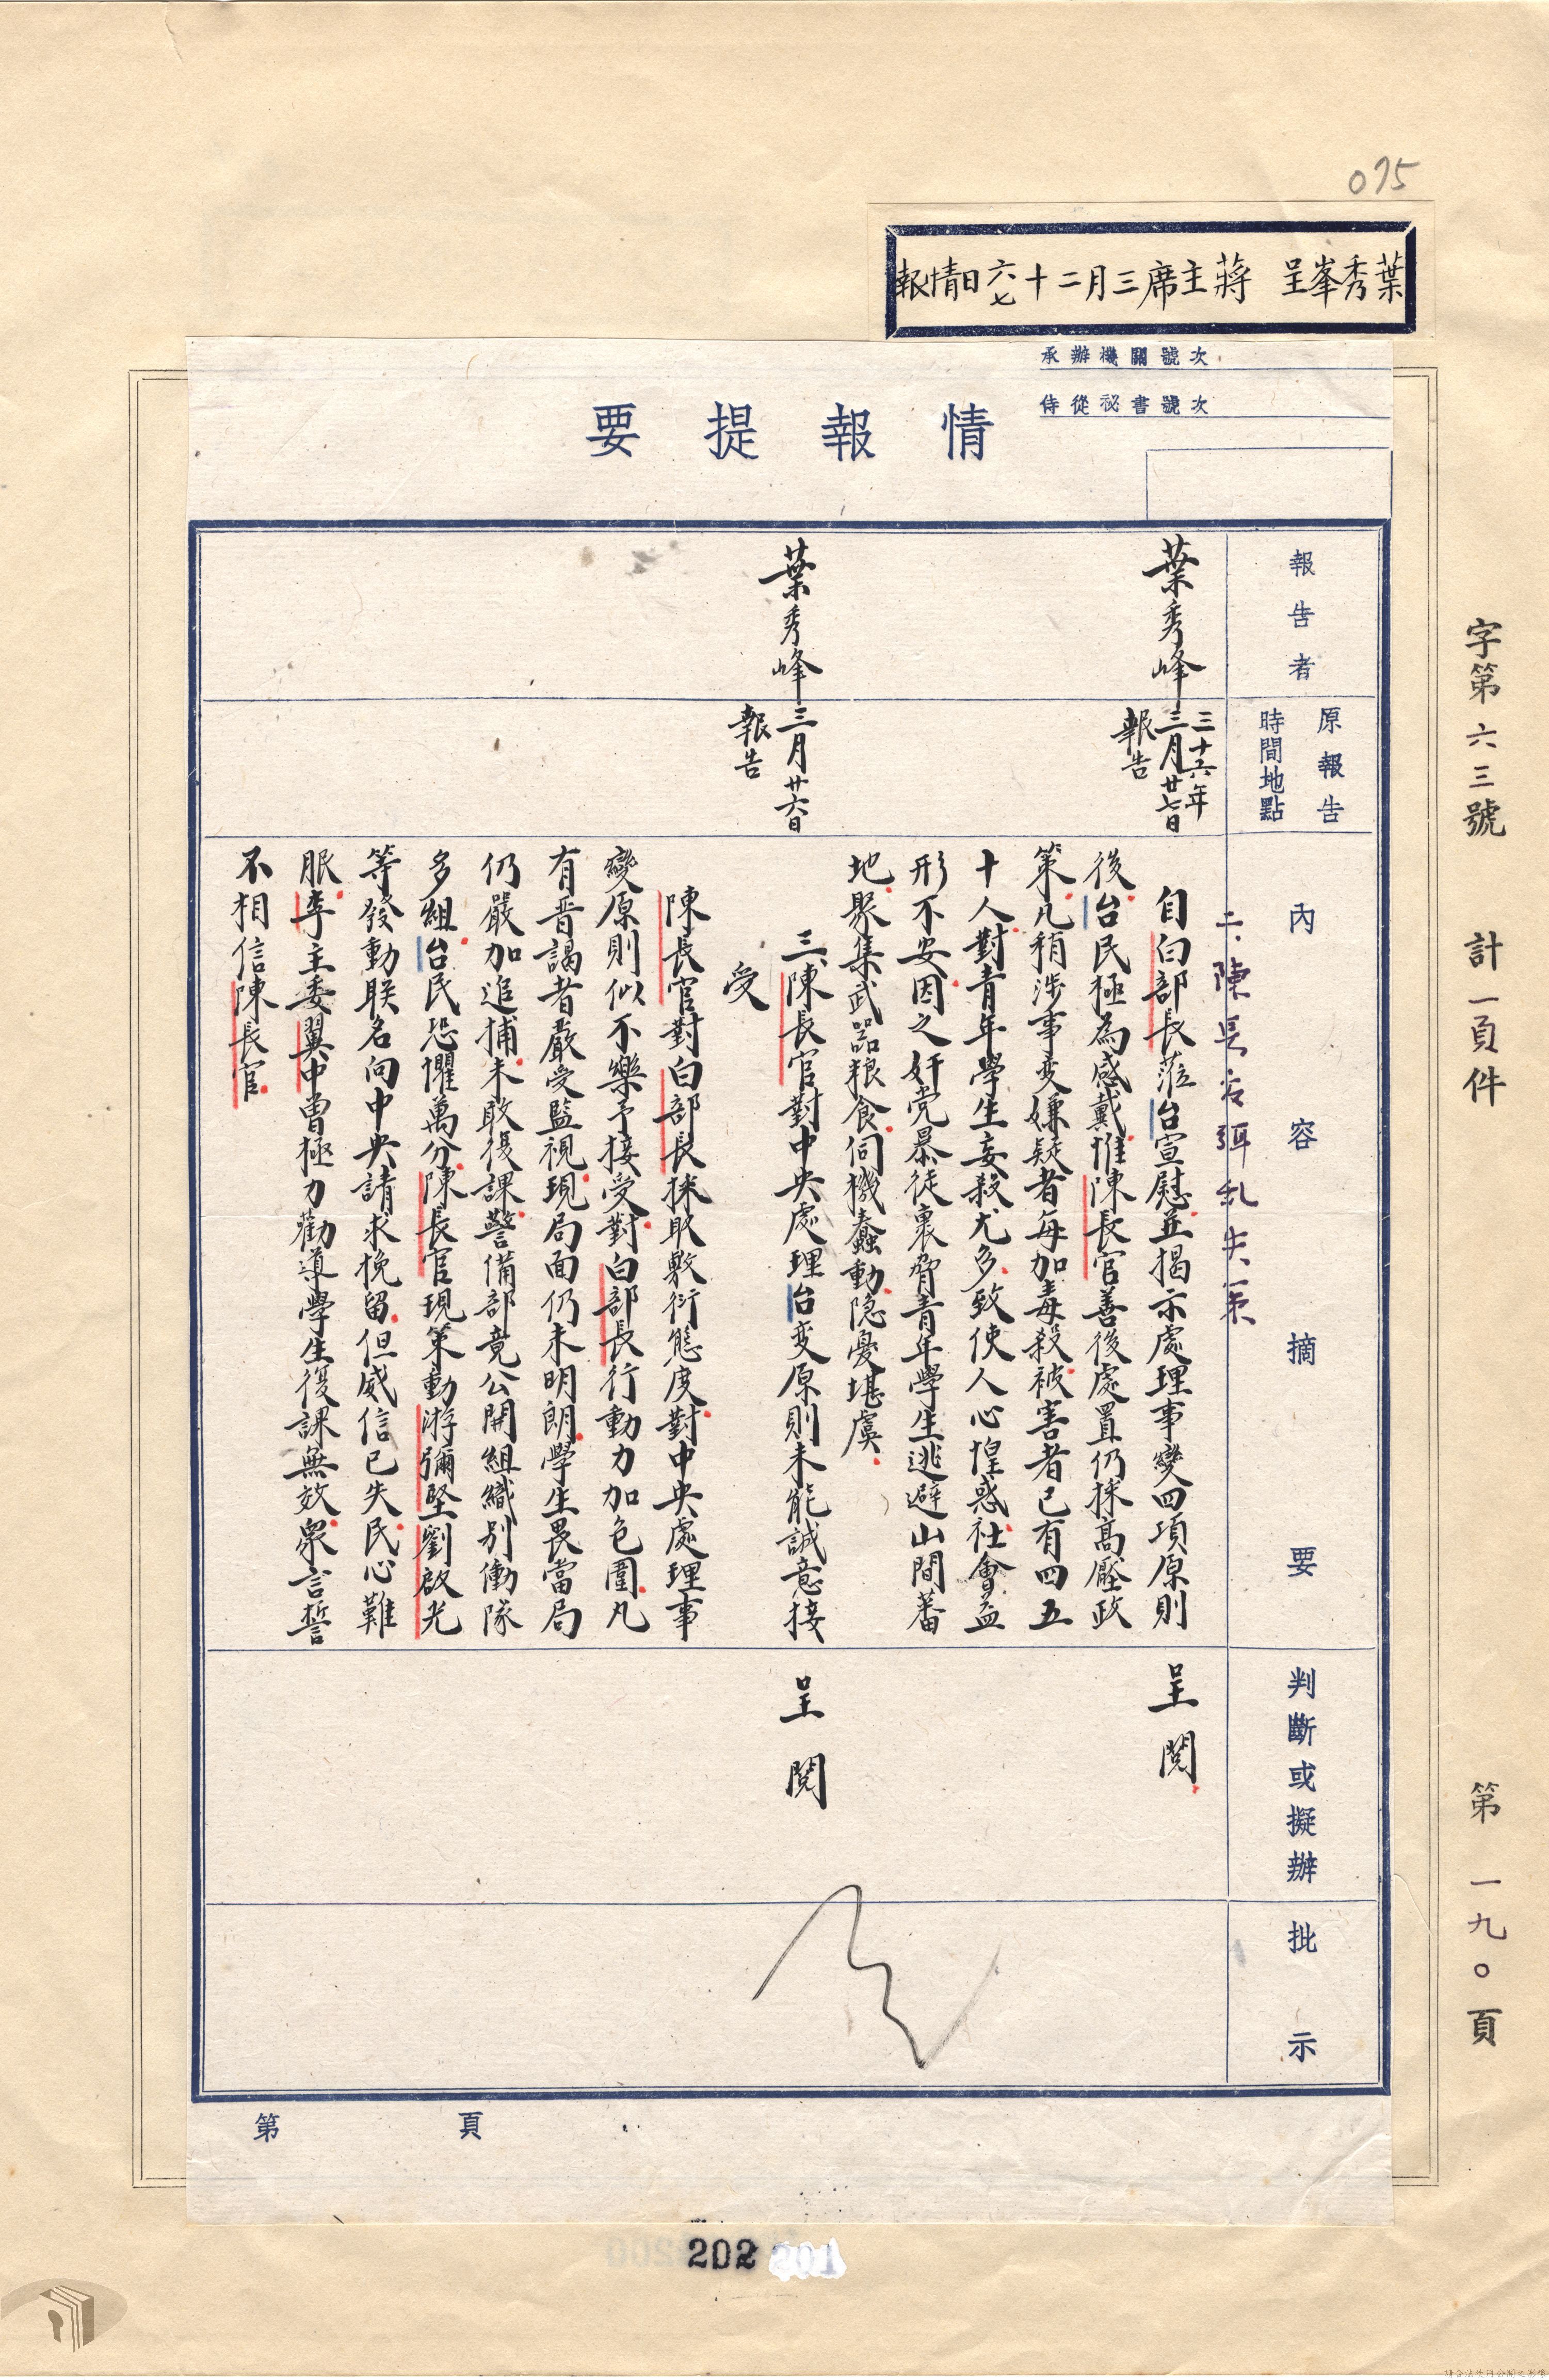 075
葉秀峯呈 蔣主席三月二十六七日情報
承辦機關號次
侍從祕書號次
情報提要
字第六三號 計一頁件 第一九〇頁
報告者
原報告
時間地點
內容摘要
判斷或擬辦
批示
葉秀峰
三十六年
三月廿七日
報告
二、陳長官弭亂失策
自白部長蒞台宣慰並揭示處理事變四項原則
後台民極為感戴惟陳長官善後處置仍採高壓政
策凡稍涉事变嫌疑者每加毒殺被害者已有四五
十人對青年學生妄殺尤多致使人心惶惑社會益
形不安因之奸党暴徒裹脅青年學生逃避山間蕃
地聚集武器粮食伺機蠢動隐憂堪虞
呈閱
葉秀峰
三月廿六日
報告
三、陳長官對中央處理台变原則未能誠意接
受
陳長官對白部長採取敷衍態度對中央處理事
變原則似不樂予接受對白部長行動力加包圍凡
有晋謁者嚴受監視現局面仍未明朗學生畏當局
仍嚴加追捕未敢復課警備部竟公開組織別働隊
多組台民恐懼萬分陳長官現策動游彌堅劉啟光
等發動联名向中央請求挽留但威信已失民心難
服李主委翼中曾極力勸導學生復課無效眾言誓
不相信陳長官
呈閱
第 頁
202
201